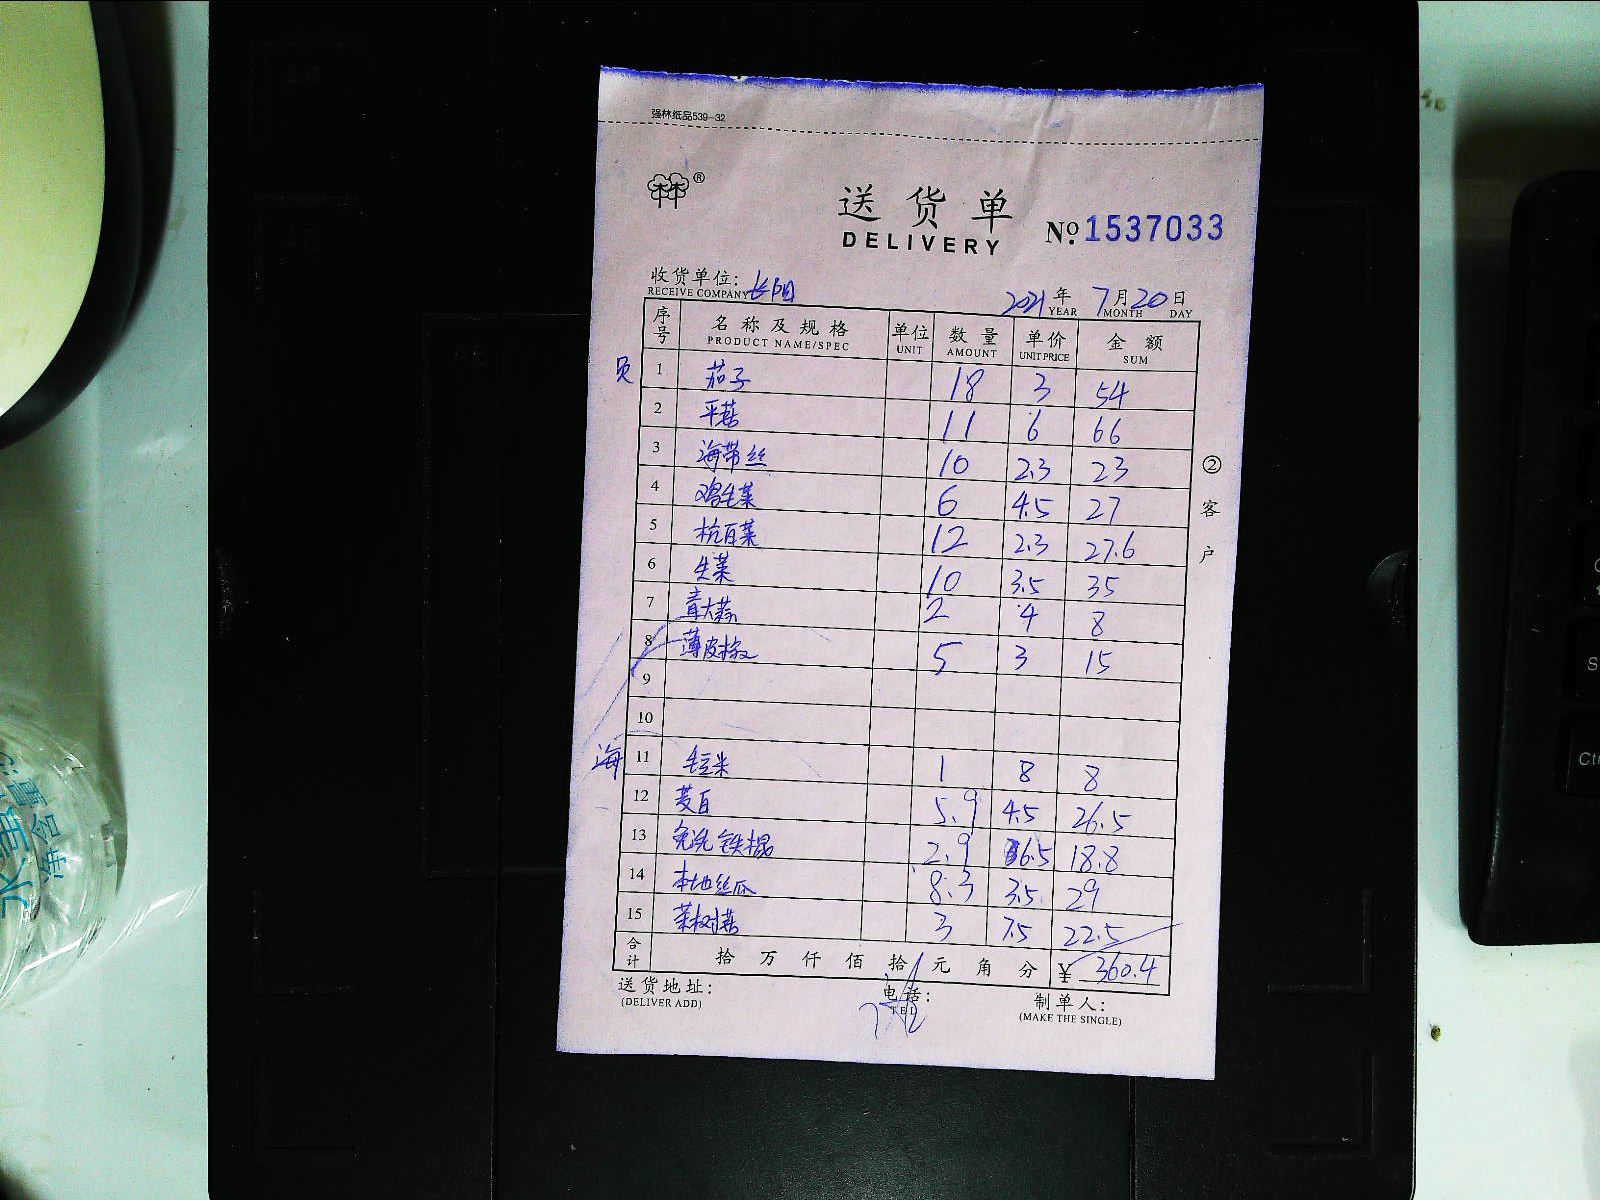 强林纸品539-32
林林®
送货单
DELIVERY
No. 1537033
收货单位: 长阳
RECEIVE COMPANY
2021 年 7 月 20 日
YEAR MONTH DAY
序号 名称及规格 单位 数量 单价 金额
PRODUCT NAME/SPEC UNIT AMOUNT UNIT PRICE SUM
员 1 茄子 18 3 54
2 平菇 11 6 66
3 海带丝 10 2.3 23
4 鸡毛菜 6 4.5 27
5 杭白菜 12 2.3 27.6
6 生菜 10 3.5 35
7 青大蒜 2 4 8
8 薄皮椒 5 3 15
9
10
海 11 毛豆米 1 8 8
12 茭白 5.9 4.5 26.5
13 免洗铁棍 2.9 6.5 18.8
14 本地丝瓜 8.3 3.5 29
15 茶树菇 3 7.5 22.5
合计 拾万仟佰拾元角分 ¥ 360.4
送货地址: 电话: 制单人:
(DELIVER ADD) TEL (MAKE THE SINGLE)
②客户